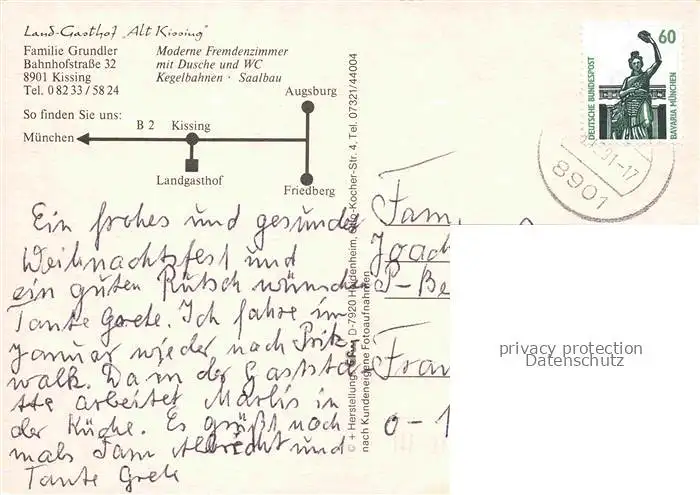 Land-Gasthof "Alt Kissing"
Familie Grundler
Bahnhofstraße 32
8901 Kissing
Tel. 0 82 33 / 58 24
Moderne Fremdenzimmer
mit Dusche und WC
Kegelbahnen · Saalbau
So finden Sie uns:
Augsburg
B 2 Kissing
München
Landgasthof
Friedberg
Ein frohes und gesundes
Weihnachtsfest und
ein guten Rutsch wünscht
Tante Grete. Ich fahre im
Januar wieder nach Pritz
walk. Da in der Gaststä
tte arbeitet Marlis in
der Küche. Es grüßt noch
mals Fam Albrecht und
Tante Grete
© + Herstellung: D-7920 Heidenheim, Otto-Kocher-Str. 4, Tel. 07321/44004
nach Kundeneigene Fotoaufnahmen
60
DEUTSCHE BUNDESPOST
BAVARIA MÜNCHEN
91-17
8901
Fam
Joach
P-Be
Fran
O-1
privacy protection
Datenschutz